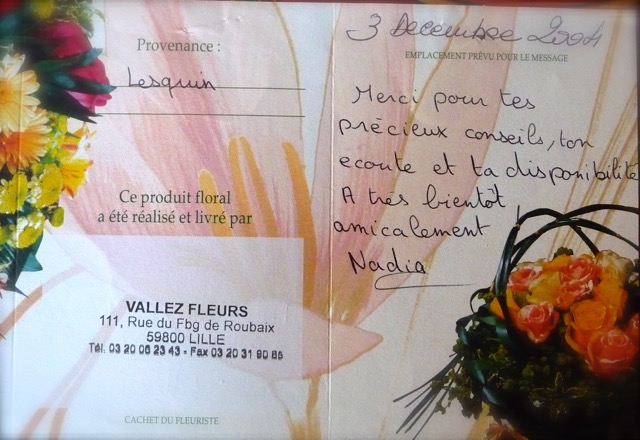 Provenance :
Lesquin
Ce produit floral
a été réalisé et livré par
VALLEZ FLEURS
111, Rue du Fbg de Roubaix
59800 LILLE
Tél. 03 20 06 23 43 - Fax 03 20 31 90 86
CACHET DU FLEURISTE
3 Decembre 2004
EMPLACEMENT PRÉVU POUR LE MESSAGE
Merci pour tes
précieux conseils, ton
ecoute et ta disponibilité
A très bientôt,
amicalement
Nadia